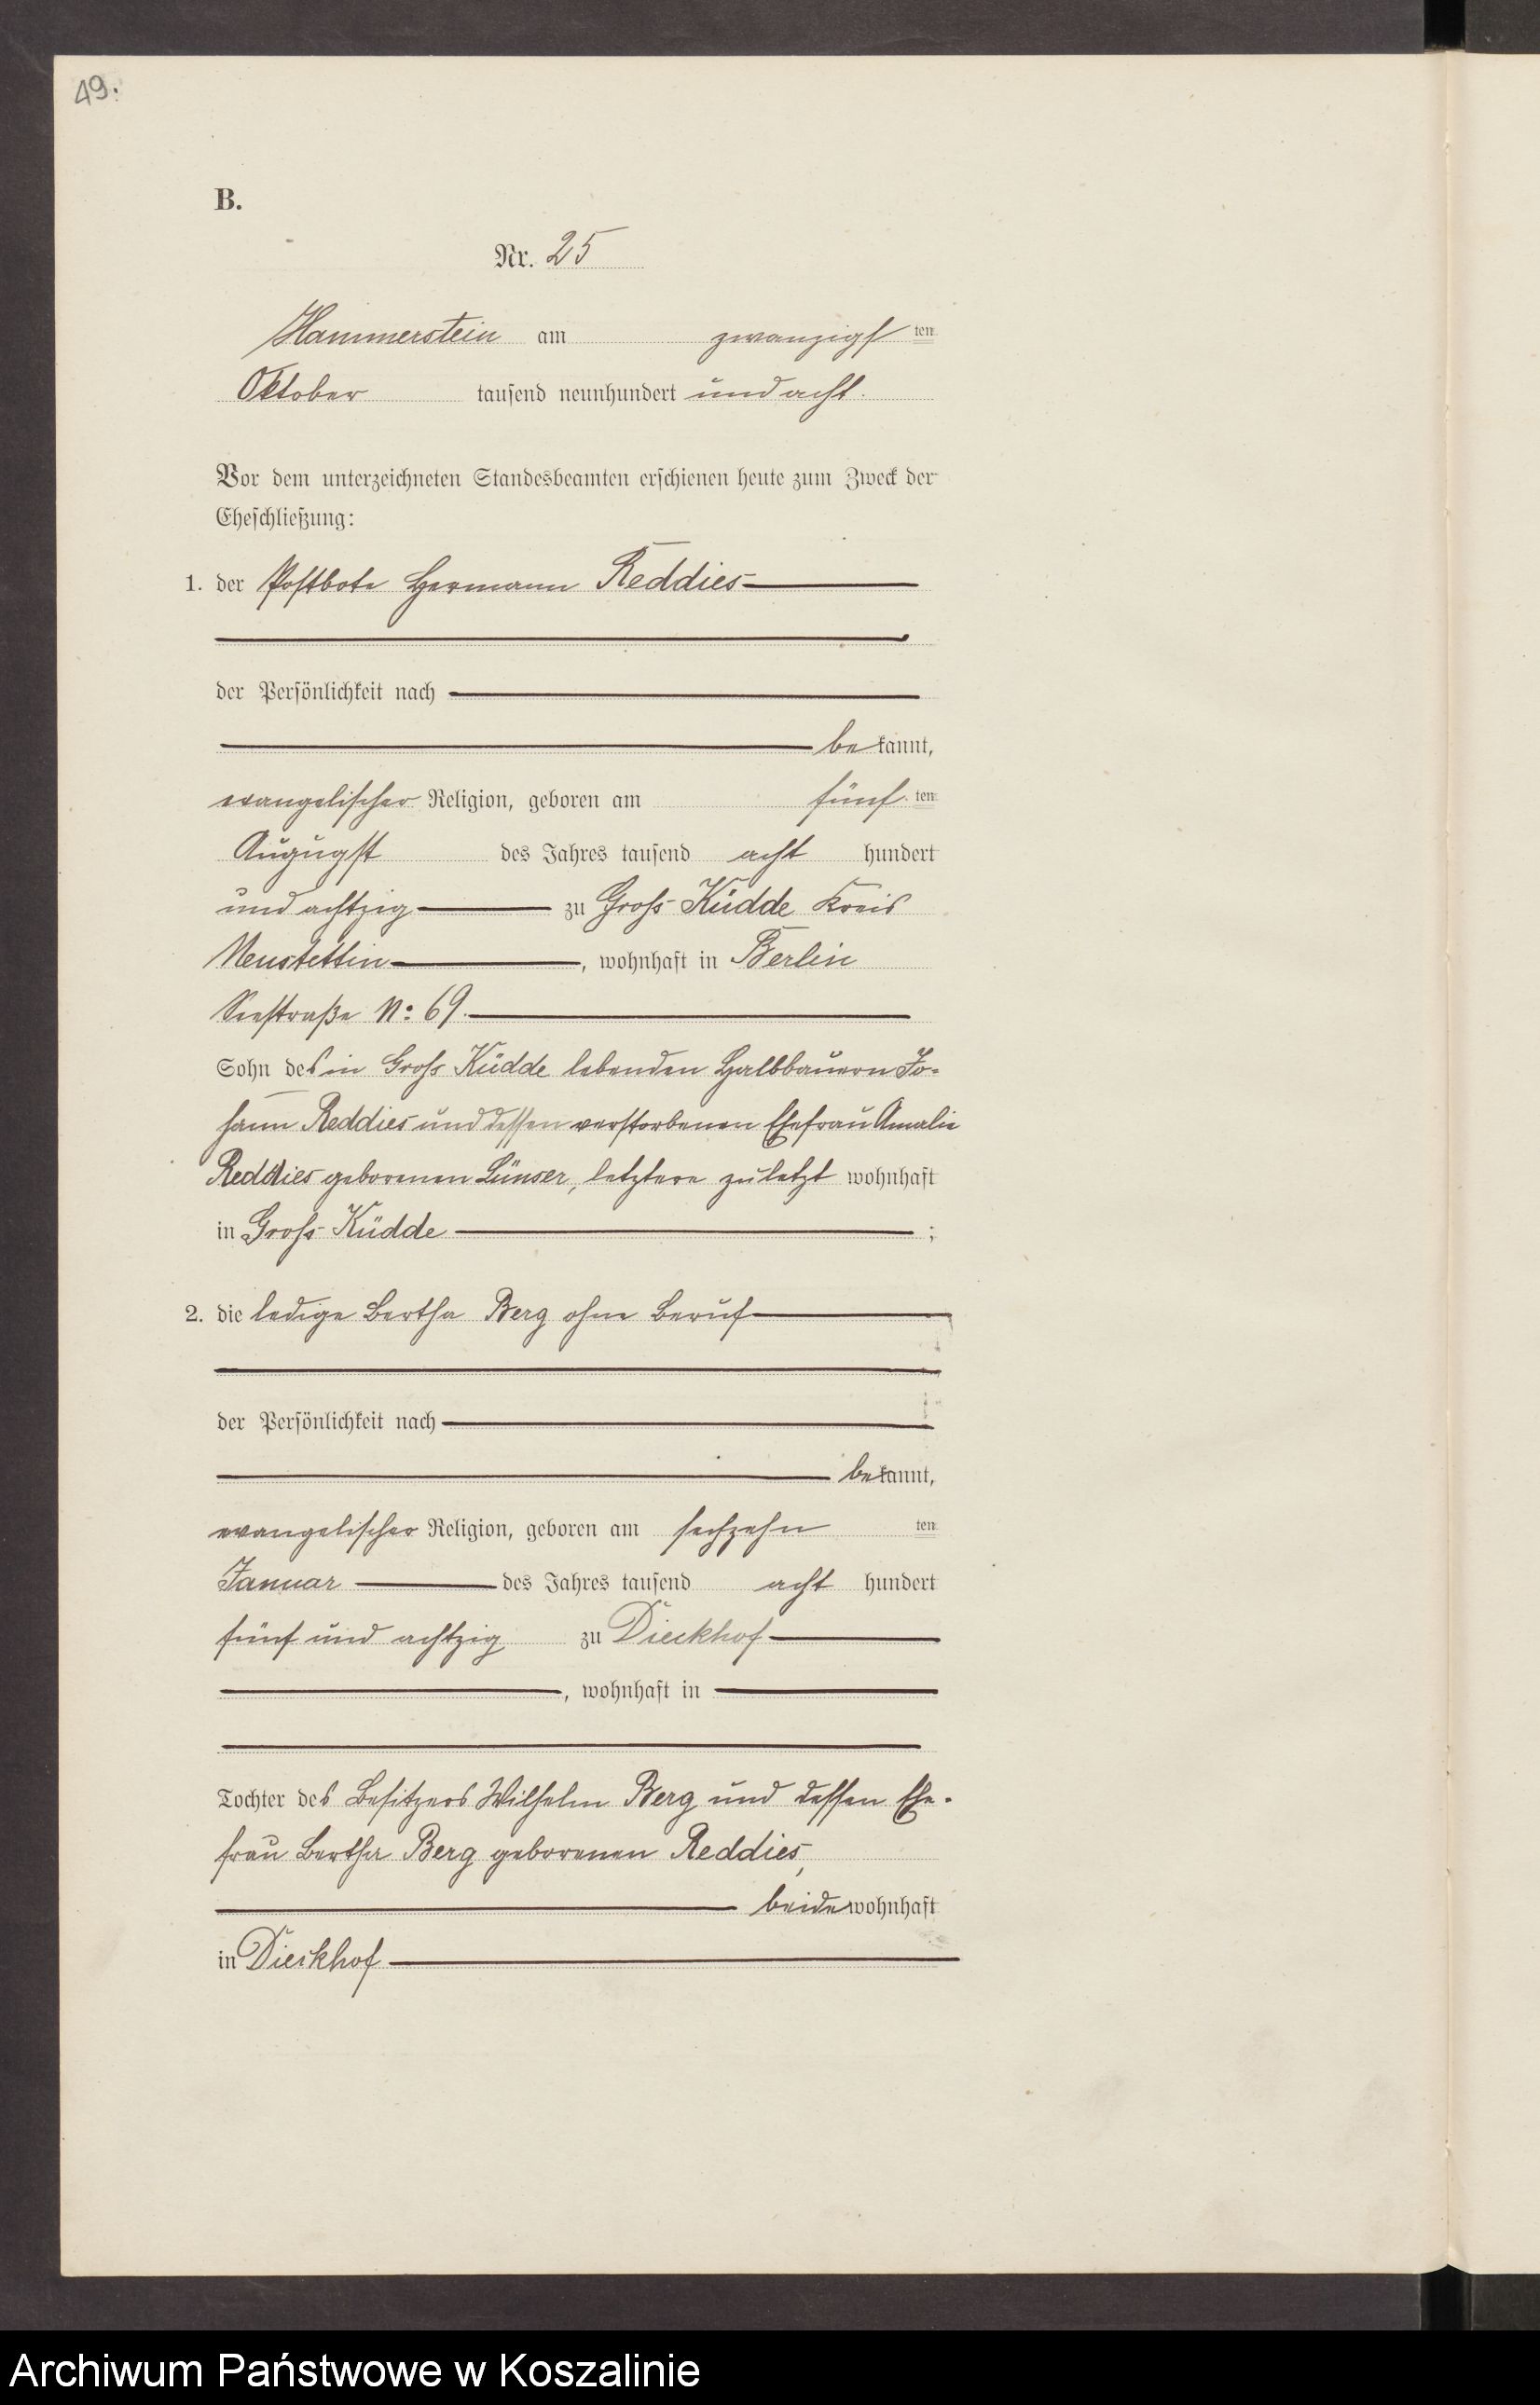 49.
B.
Nr. 25
Hammerstein am zwanzigs ten
Oktober tausend neunhundert und acht.
Vor dem unterzeichneten Standesbeamten erschienen heute zum Zweck der
Eheschließung:
1. der Postbote Hermann Reddies
der Persönlichkeit nach
be kannt,
evangelischer Religion, geboren am fünf ten
Augugst des Jahres tausend acht hundert
und achtzig zu Gross-Küdde Kreis
Neustettin, wohnhaft in Berlin
Seestraße No: 69.
Sohn des in Gross Küdde lebenden Halbbauern Jo-
hann Reddies und dessen verstorbenen Ehefrau Amalie
Reddies geborenen Lünser, letztere zuletzt wohnhaft
in Gross-Küdde ;
2. die ledige Bertha Berg ohne Beruf
der Persönlichkeit nach
bekannt,
evangelischer Religion, geboren am sechzehn ten
Januar des Jahres tausend acht hundert
fünf und achtzig zu Dieckhof
, wohnhaft in
Tochter des Besitzers Wilhelm Berg und dessen Ehe-
frau Bertha Berg geborenen Reddies,
beide wohnhaft
in Dieckhof
Archiwum Państwowe w Koszalinie